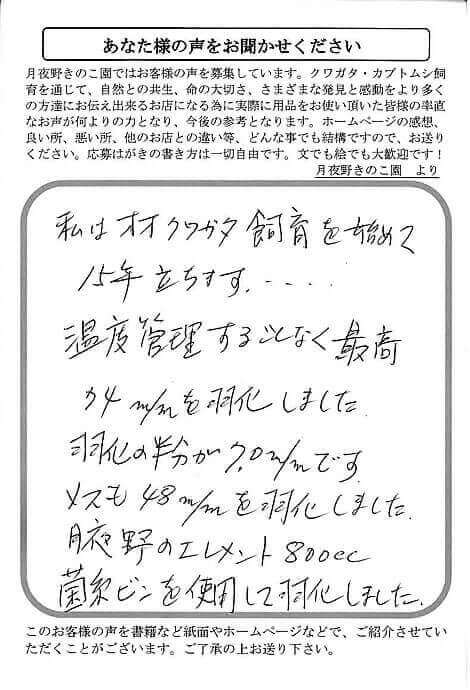 あなた様の声をお聞かせください
月夜野きのこ園ではお客様の声を募集しています。クワガタ・カブトムシ飼
育を通じて、自然との共生、命の大切さ、さまざまな発見と感動をより多く
の方達にお伝え出来るお店になる為に実際に用品をお使い頂いた皆様の率直
なお声が何よりの力となり、今後の参考となります。ホームページの感想、
良い所、悪い所、他のお店との違い等、どんな事でも結構ですので、お送り
ください。応募はがきの書き方は一切自由です。文でも絵でも大歓迎です！
月夜野きのこ園　より
私はオオクワガタ飼育を始めて
15年立ちます.....
温度管理することなく最高
74m/mを羽化しました.
羽化の半分が70m/mです
メスも48m/mを羽化しました.
月夜野のエレメント800cc
菌糸ビンを使用して羽化しました.
このお客様の声を書籍など紙面やホームページなどで、ご紹介させてい
ただくことがございます。ご了承の上お送り下さい。